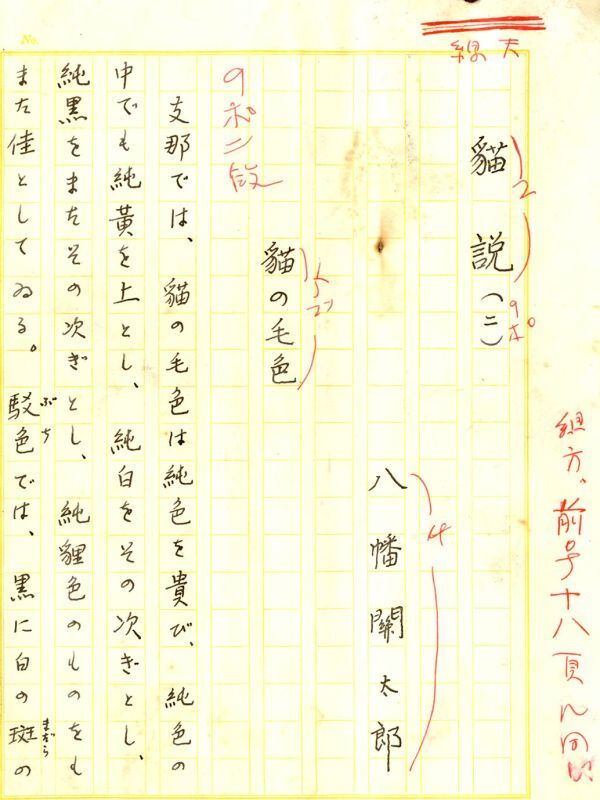 組方、前号十八頁ニ同じ
天
貓説(二)
2
9ポ
八幡關太郎
4
貓の毛色
9ポ二段
支那では、貓の毛色は純色を貴び、純色の
中でも純黃を上とし、純白をその次ぎとし、
純黒をまたその次ぎとし、純貍色のものをも
また佳としてゐる。駁色では、黒に白の斑の
ぶち
まだら
No.